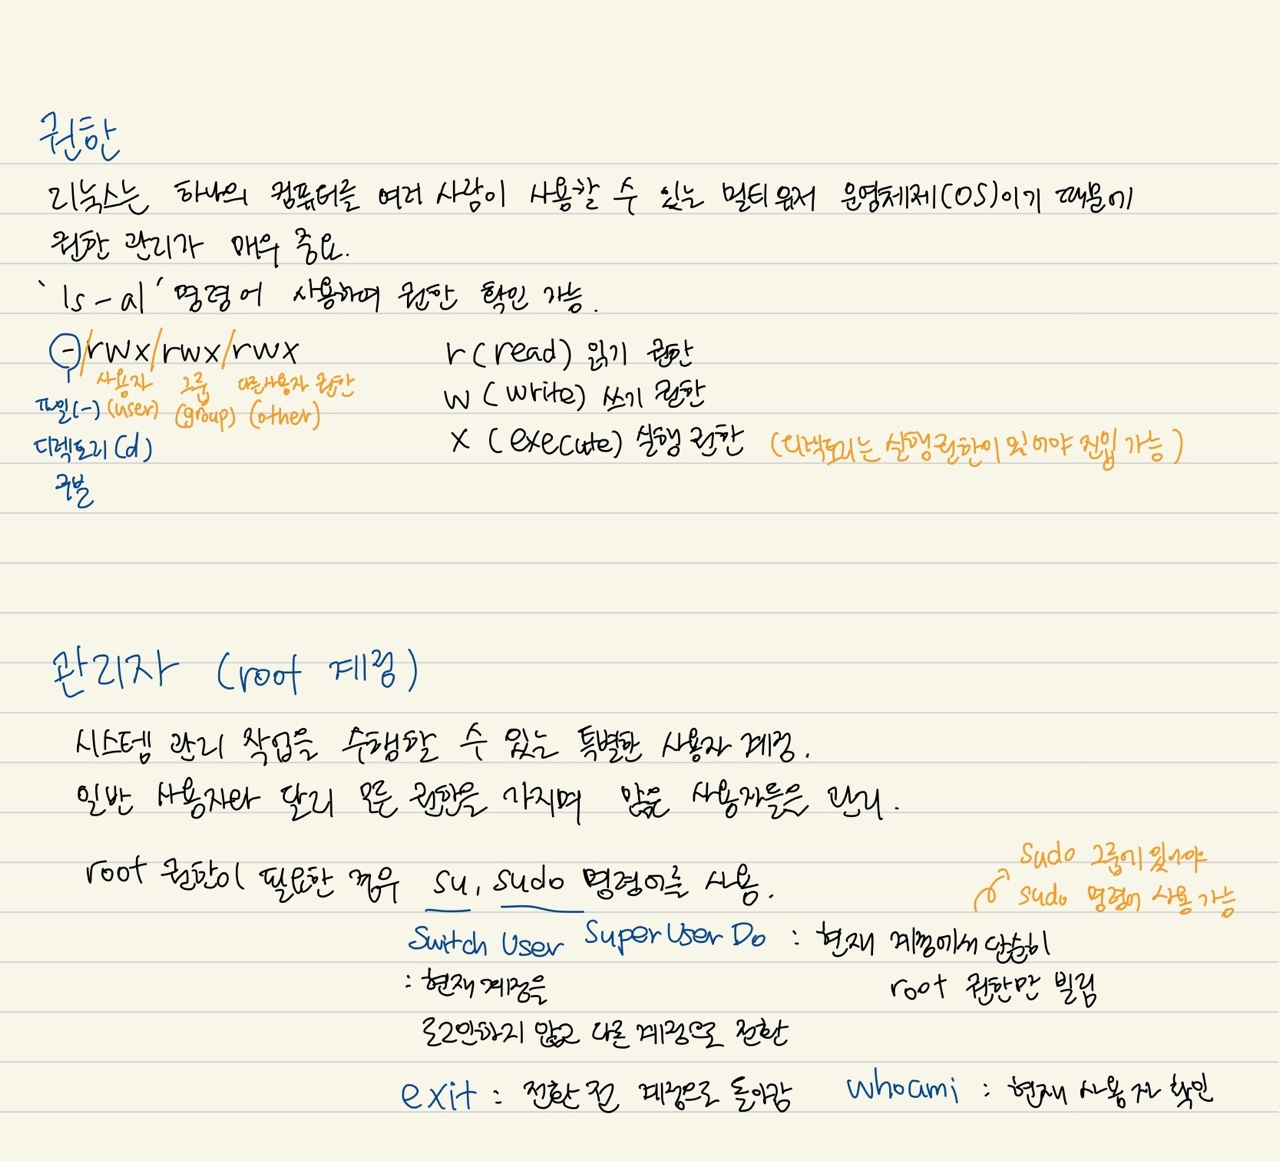 권한
리눅스는 하나의 컴퓨터를 여러 사람이 사용할 수 있는 멀티 유저 운영체제(OS)이기 때문에
권한 관리가 매우 중요.
`ls -al' 명령어 사용하여 권한 확인 가능.
-/rwx/rwx/rwx
사용자 그룹 다른사용자 권한
파일(-) (user) (group) (other)
디렉토리(d)
구분
r (read) 읽기 권한
w (write) 쓰기 권한
x (execute) 실행 권한 (디렉토리는 실행권한이 있어야 진입 가능)
관리자 (root 계정)
시스템 관리 작업을 수행할 수 있는 특별한 사용자 계정.
일반 사용자와 달리 모든 권한을 가지며 많은 사용자들을 관리.
root 권한이 필요한 경우 su, sudo 명령어를 사용.
sudo 그룹에 있어야
sudo 명령어 사용 가능
Switch User
: 현재 계정을
로그인하지 않고 다른 계정으로 전환
Super User Do : 현재 계정에서 단순히
root 권한만 빌림
exit : 전환 전 계정으로 돌아감
whoami : 현재 사용자 확인